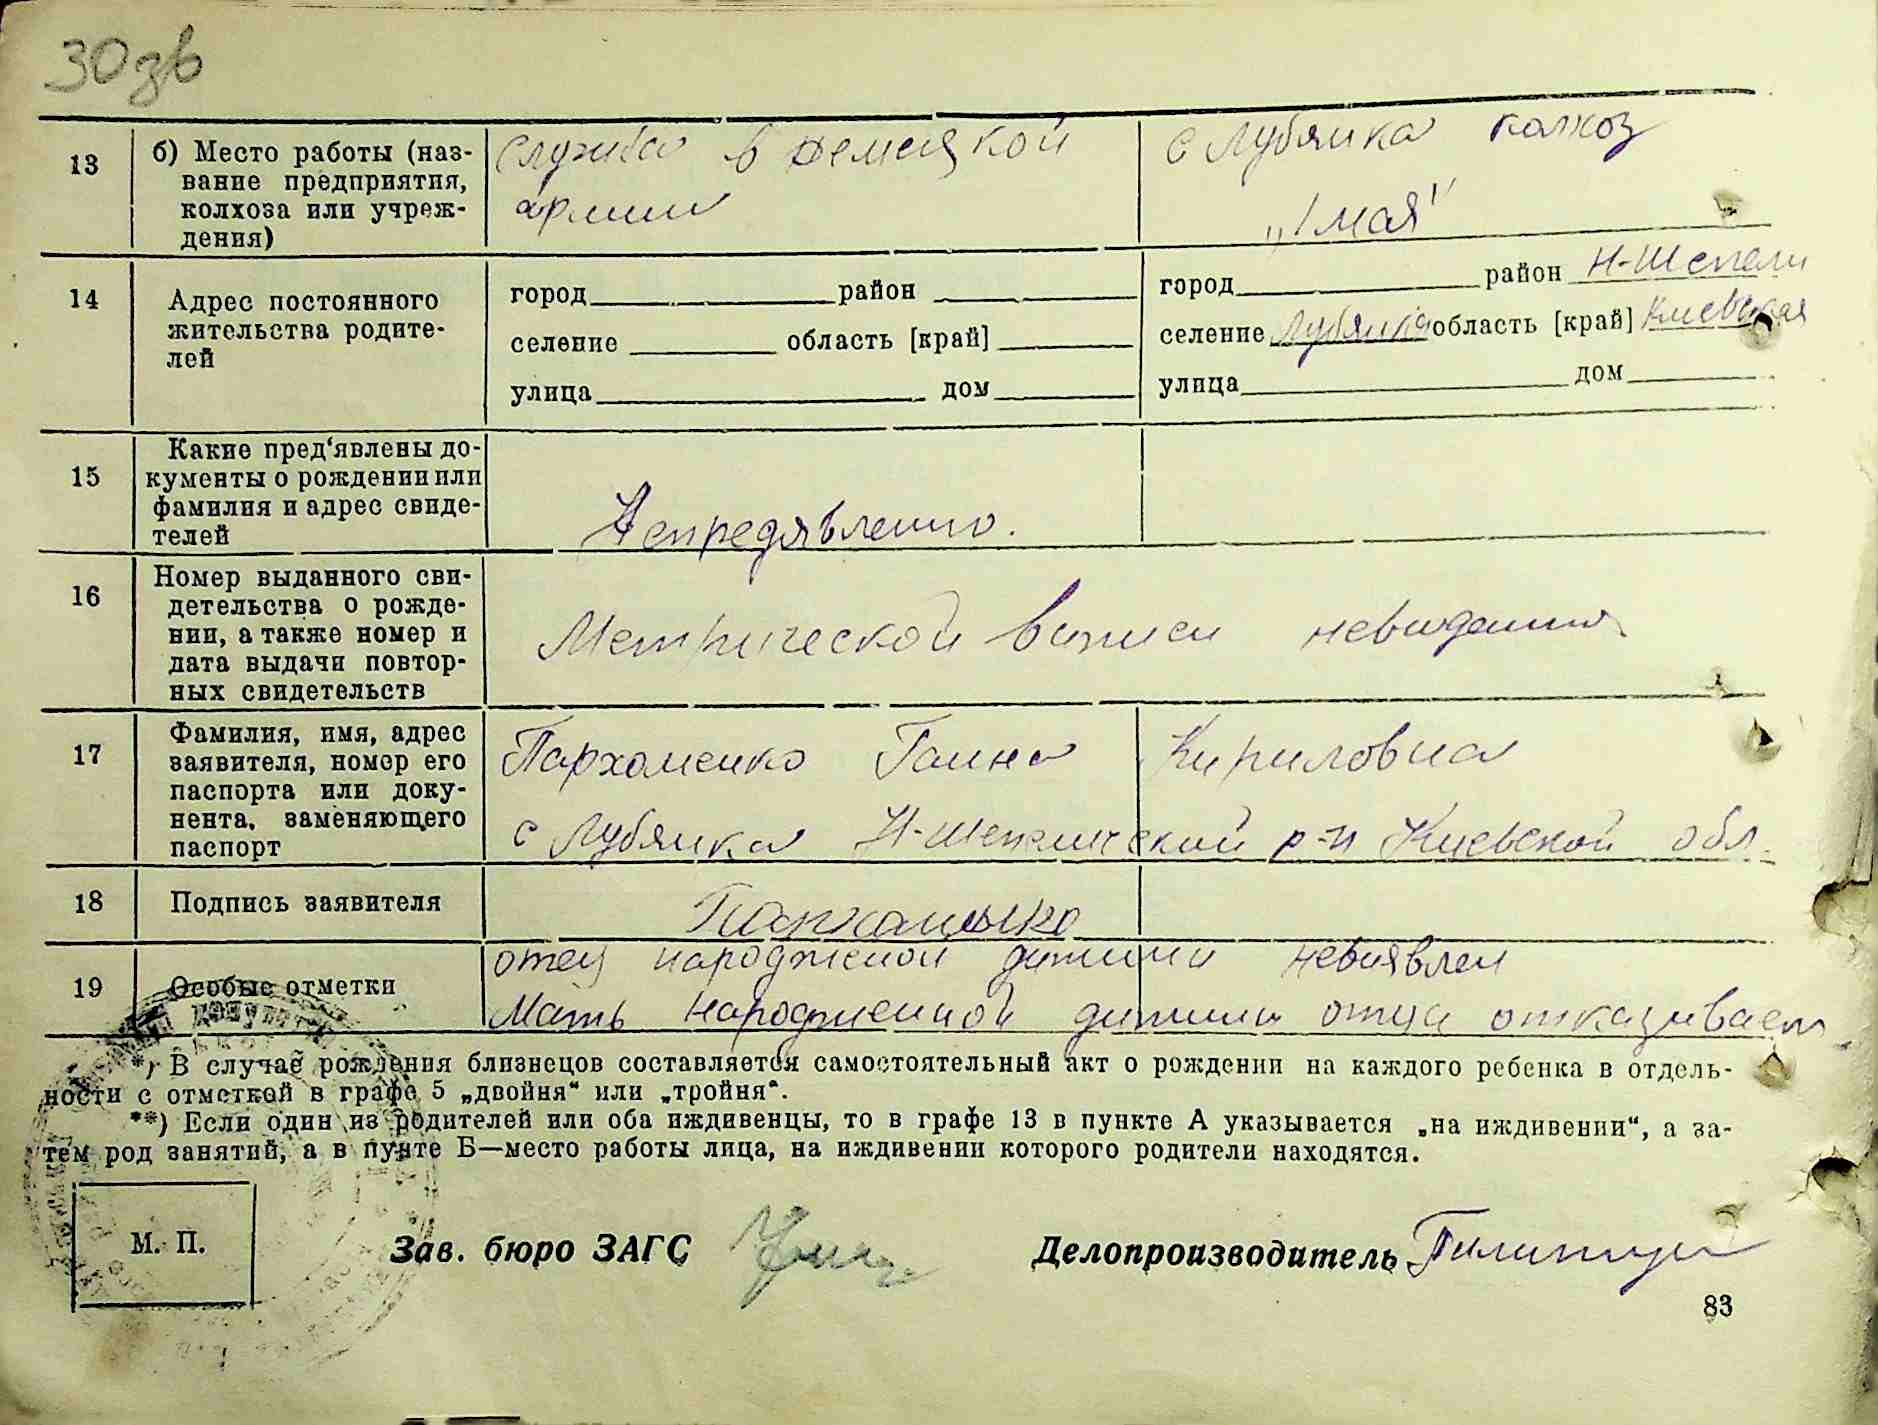 30 зв
13
б) Место работы (наз-
вание предприятия,
колхоза или учреж-
дения)
служба в немецкой
армии
с Лубянка колхоз
„1 мая"
14
Адрес постоянного
жительства родите-
лей
город район
селение область [край]
улица дом
город район Н-Шепели
селение Лубянка область [край] Киевская
улица дом
15
Какие пред'явлены до-
кументы о рождении или
фамилия и адрес свиде-
телей
Непредявлено.
16
Номер выданного сви-
детельства о рожде-
нии, а также номер и
дата выдачи повтор-
ных свидетельств
Метрической виписи невидания
17
Фамилия, имя, адрес
заявителя, номер его
паспорта или доку-
нента, заменяющего
паспорт
Пархоменко Ганна Кириловна
с Лубянка Н-Шепелический р-н Киевской обл.
18
Подпись заявителя
19
Особые отметки
отец народженой дитини невиявлен
Мать народженной дитини отца отказивает
*) В случае рождения близнецов составляется самостоятельный акт о рождении на каждого ребенка в отдель-
ности с отметкой в графе 5 „двойня“ или „тройня“.
**) Если один из родителей или оба иждивенцы, то в графе 13 в пункте А указывается „на иждивении“, а за-
тем род занятий, а в пунте Б—место работы лица, на иждивении которого родители находятся.
М. П.
Зав. бюро ЗАГС
Делопроизводитель
83